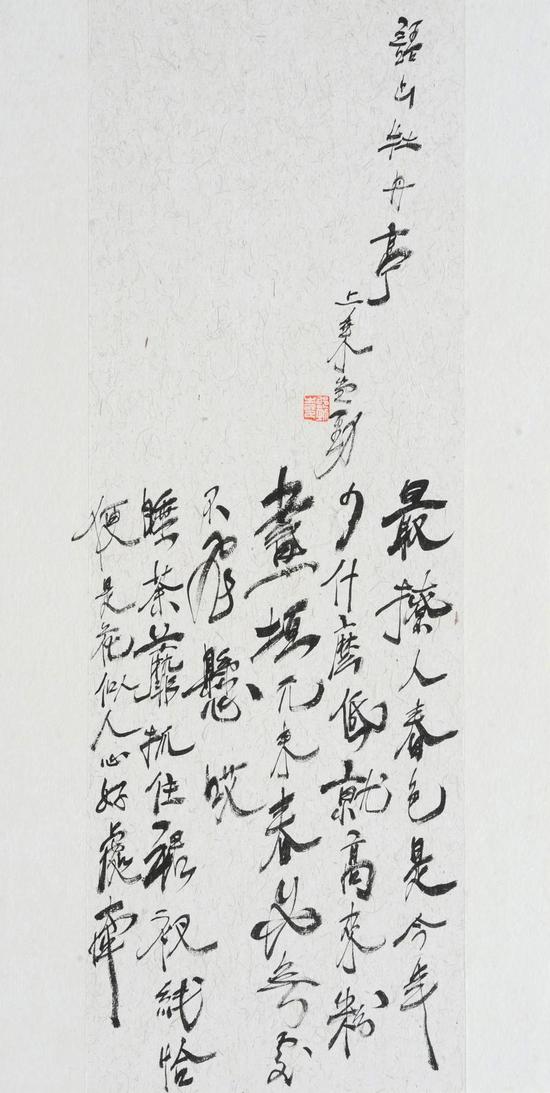 語出牡丹亭
最撩人春色是今年
少什麼低就高來粉
畫垣元來春心無處
不飛懸哎
睡荼蘼抓住裙衩綫恰
便是花似人心好處牽